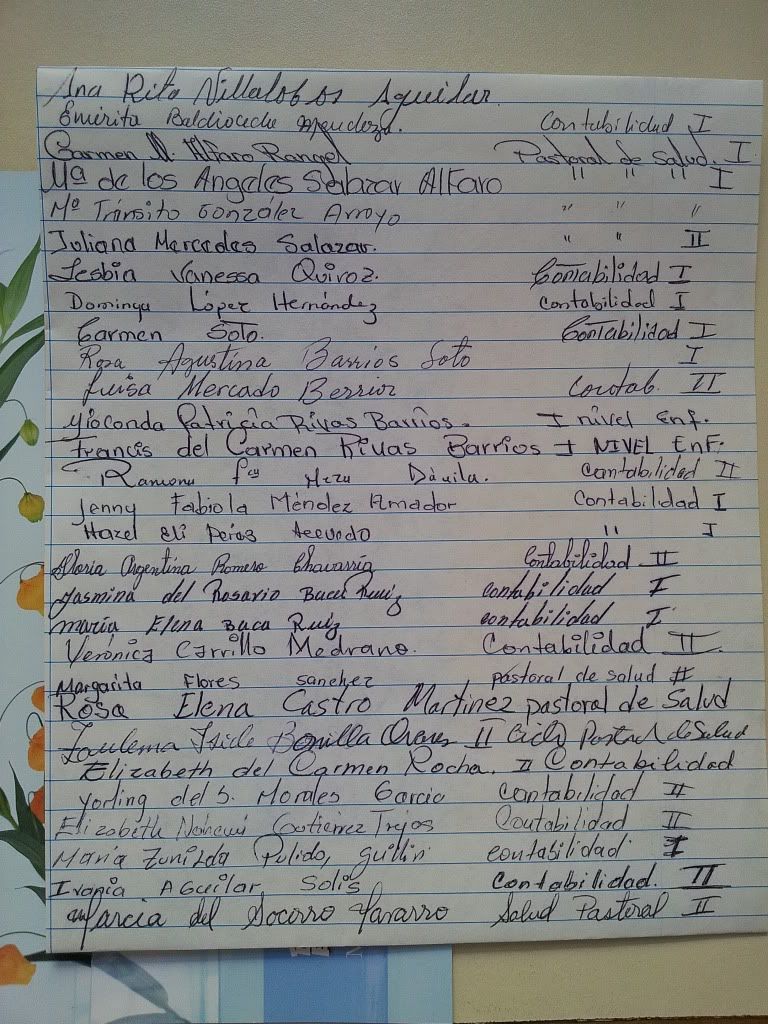 Ana Rita Villalobos Aguilar.
Emérita Baldioceda Mendoza. Contabilidad I
Carmen M. Alfaro Rangel Pastoral de Salud. I
Mª de los Angeles Salazar Alfaro " " " I
Mª Tránsito González Arroyo " " "
Juliana Mercedes Salazar. " " II
Lesbia Vanessa Quiroz. Contabilidad I
Dominga López Hernández contabilidad I
Carmen Soto. Contabilidad I
Rosa Agustina Barrios Soto I
Luisa Mercado Berrior Contab. II
Yioconda Patricia Rivas Barrios. I nivel Enf.
Francis del Carmen Rivas Barrios I NIVEL Enf.
Ramona Dávila. Contabilidad II
Jenny Fabiola Méndez Amador Contabilidad I
Hazel Eli Acevedo " I
Gloria Argentina Romero Chavarría Contabilidad II
Yasmina del Rosario Baca Ruiz contabilidad I
maria Elena Baca Ruiz contabilidad I
Verónica Carrillo Medrano. Contabilidad II
Margarita Flores sanchez pastoral de salud II
Rosa Elena Castro Martinez pastoral de Salud
Bonilla II Ciclo Pastoral de Salud
Elizabeth del Carmen Rocha. II Contabilidad
Yorling del S. Morales Garcia contabilidad II
Elizabeth Nohemi Gutiérrez Trejos Contabilidad II
María Zunilda Pulido, guillin contabilidad I
Ivania Aguilar Solis Contabilidad. II
Marcia del Socorro Navarro Salud Pastoral II